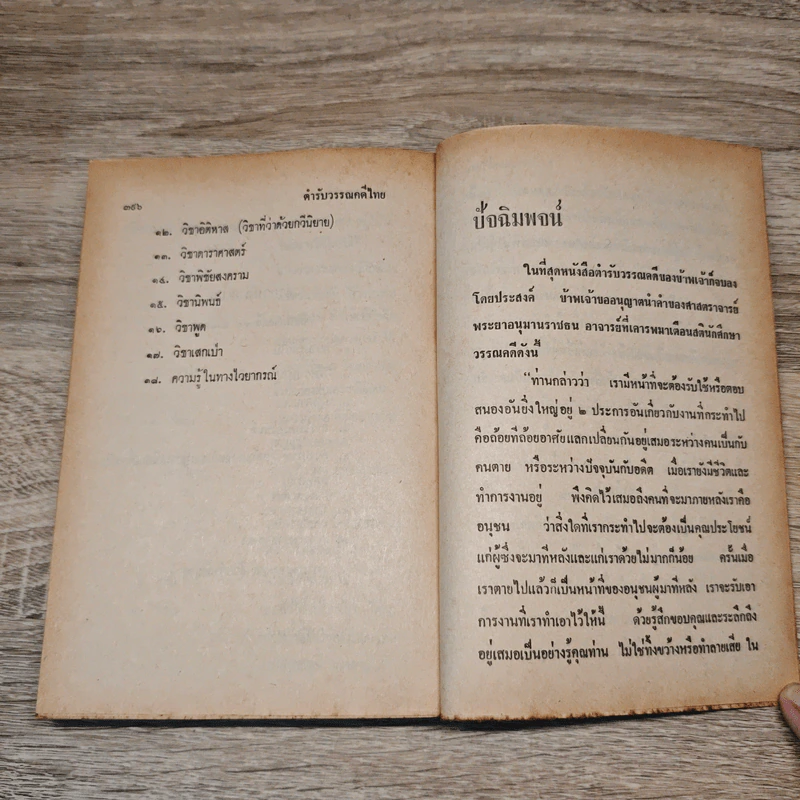 ๓๙๖
ตำรับวรรณคดีไทย
๑๒. วิชาอิติหาส (วิชาที่ว่าด้วยกวีนิยาย)
๑๓. วิชาดาราศาสตร์
๑๔. วิชาพิชัยสงคราม
๑๕. วิชานิพนธ์
๑๖. วิชาพูด
๑๗. วิชาเสกเป่า
๑๘. ความรู้ในทางไวยากรณ์
ปัจฉิมพจน์
ในที่สุดหนังสือตำรับวรรณคดีของข้าพเจ้าก็จบลง
โดยประสงค์ ข้าพเจ้าขออนุญาตนำคำของศาสตราจารย์
พระยาอนุมานราชธน อาจารย์ที่เคารพมาเตือนสตินักศึกษา
วรรณคดีดังนี้
"ท่านกล่าวว่า เรามีหน้าที่จะต้องรับใช้หรือตอบ
สนองอันยิ่งใหญ่อยู่ ๒ ประการอันเกี่ยวกับงานที่กระทำไป
คือถ้อยทีถ้อยอาศัยแลกเปลี่ยนกันอยู่เสมอระหว่างคนเป็นกับ
คนตาย หรือระหว่างปัจจุบันกับอดีต เมื่อเรายังมีชีวิตและ
ทำการงานอยู่ พึงคิดไว้เสมอถึงคนที่จะมาภายหลังเราคือ
อนุชน ว่าสิ่งใดที่เรากระทำไปจะต้องเป็นคุณประโยชน์
แก่ผู้ซึ่งจะมาทีหลังและแก่เราด้วยไม่มากก็น้อย ครั้นเมื่อ
เราตายไปแล้วก็เป็นหน้าที่ของอนุชนผู้มาทีหลัง เราจะรับเอา
การงานที่เราทำเอาไว้ให้นี้ ด้วยรู้สึกขอบคุณและระลึกถึง
อยู่เสมอเป็นอย่างรู้คุณท่าน ไม่ใช่ทิ้งขว้างหรือทำลายเสีย ใน